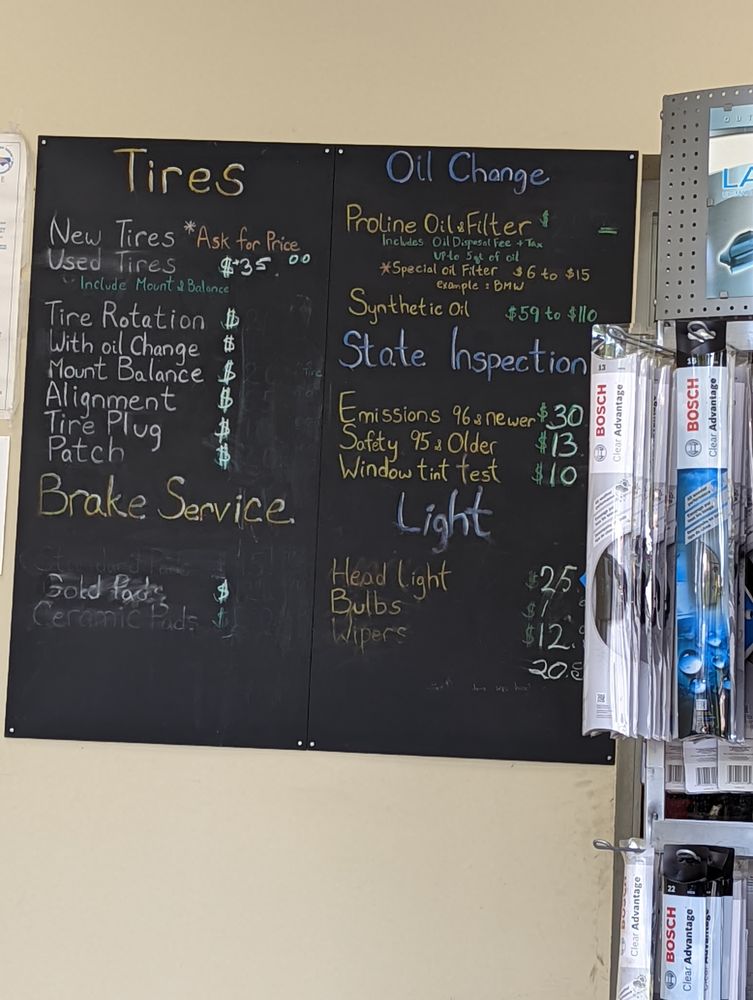 Tires
New Tires *Ask for Price
Used Tires $35 00
Include Mount & Balance
Tire Rotation $
With oil Change $
Mount Balance $
Alignment $
Tire Plug $
Patch $
Brake Service
Standard Pads
Gold Pads $
Ceramic Pads $
Oil Change
Proline Oil & Filter $
Includes Oil Disposal Fee + Tax
Up to 5qt of oil
*Special oil Filter $6 to $15
example: BMW
Synthetic Oil $59 to $110
State Inspection
Emissions 96 & newer $30
Safety 95 & Older $13
Window tint test $10
Light
Head Light $25
Bulbs $
Wipers $12.
20.
13
BOSCH
Clear Advantage
BOSCH
Clear Advantage
LA
BOSCH
Clear Advantage
22
BOSCH
Clear Advantage